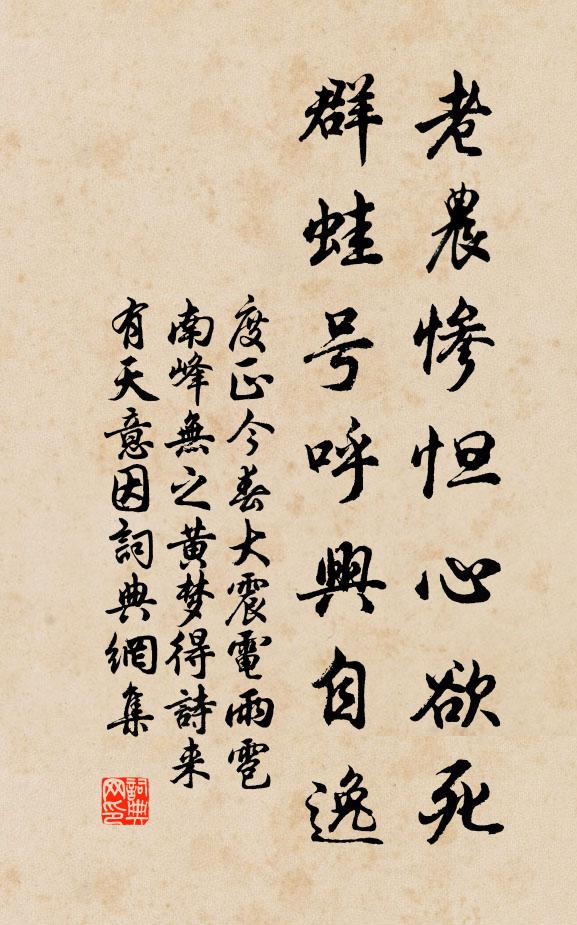 老農慘怛心欲死
群蛙号呼興自逸
度正今春大震電雨雹
南峰無之黄梦得詩来
有天意因詞典網集
詞典
网印